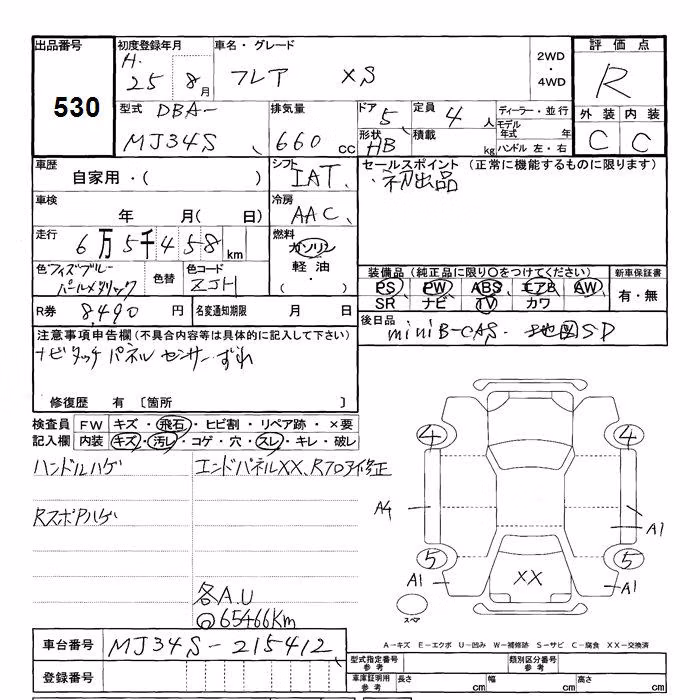 出品番号
530
初度登録年月
H.
25 8月
車名・グレード
フレア XS
2WD
・
4WD
評価点
R
型式 DBA-
MJ34S
排気量
660 cc
ドア 5
形状 HB
定員 4 人
積載 kg
ディーラー・並行
モデル年式 年
ハンドル 左・右
外装 内装
C C
車歴
自家用・( )
シフト
IAT
セールスポイント (正常に機能するものに限ります)
・初出品
車検
年 月( 日)
冷房
AAC
走行
6万5千458km
燃料
ガソリン
軽油
( ・ )
色 フィズブルーパールメタリック
色替
色コード
ZJH
装備品 (純正品に限り○をつけてください)
PS PW ABS エアB AW
SR ナビ TV カワ
新車保証書
有・無
R券 8490 円
名変通知期限 月 日
後日品
miniB-CAS・地図SD
注意事項申告欄 (不具合内容等は具体的に記入して下さい)
ナビタッチパネルセンサーずれ
修復歴 有 〔箇所 〕
検査員 FW キズ・飛石・ヒビ割・リペア跡・×要
記入欄 内装 キズ・汚レ・コゲ・穴・スレ・キレ・破レ
ハンドルハゲ
エンドパネルXX、Rフロア修正
Rスポアハゲ
各A.U
@65466Km
4 4
A4
A1
5 5
A1 XX A1
スペア
A-キズ E-エクボ U-凹み W-補修跡 S-サビ C-腐食 XX-交換済
車台番号 MJ34S-215412
登録番号
型式指定番号 参考
類別区分番号 参考
車庫証明用 参考
長さ cm 幅 cm 高さ cm